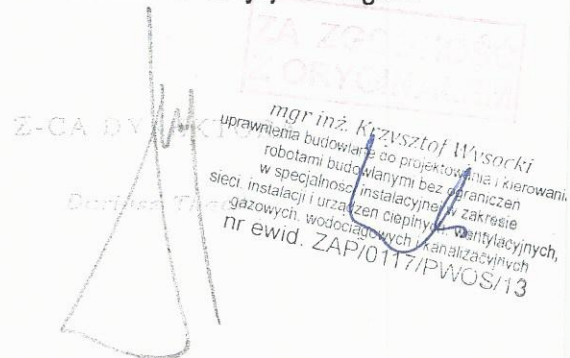 ZA ZGODNOŚĆ
Z ORYGINAŁEM
Z-CA DYREKTORA
mgr inż. Krzysztof Wysocki
uprawnienia budowlane do projektowania i kierowania
robotami budowlanymi bez ograniczeń
w specjalności instalacyjnej w zakresie
sieci, instalacji i urządzeń cieplnych, wentylacyjnych,
gazowych, wodociągowych i kanalizacyjnych
nr ewid. ZAP/0117/PWOS/13